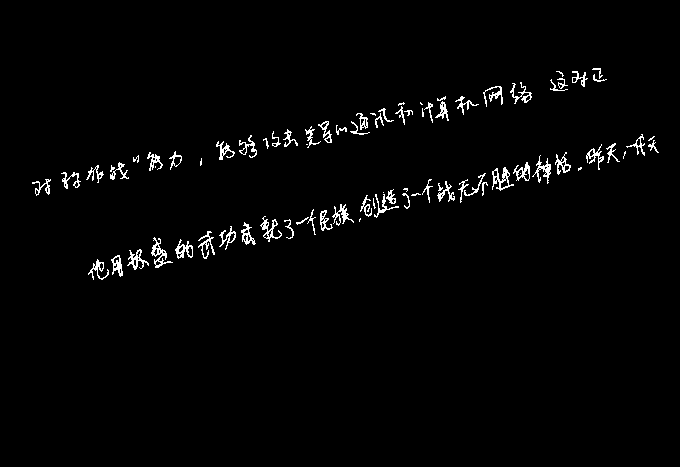 对称作战"能力，能够攻击美军的通讯和计算机网络 这对正
他用极盛的武功成就了一个民族，创造了一个战无不胜的神话。昨天，一天